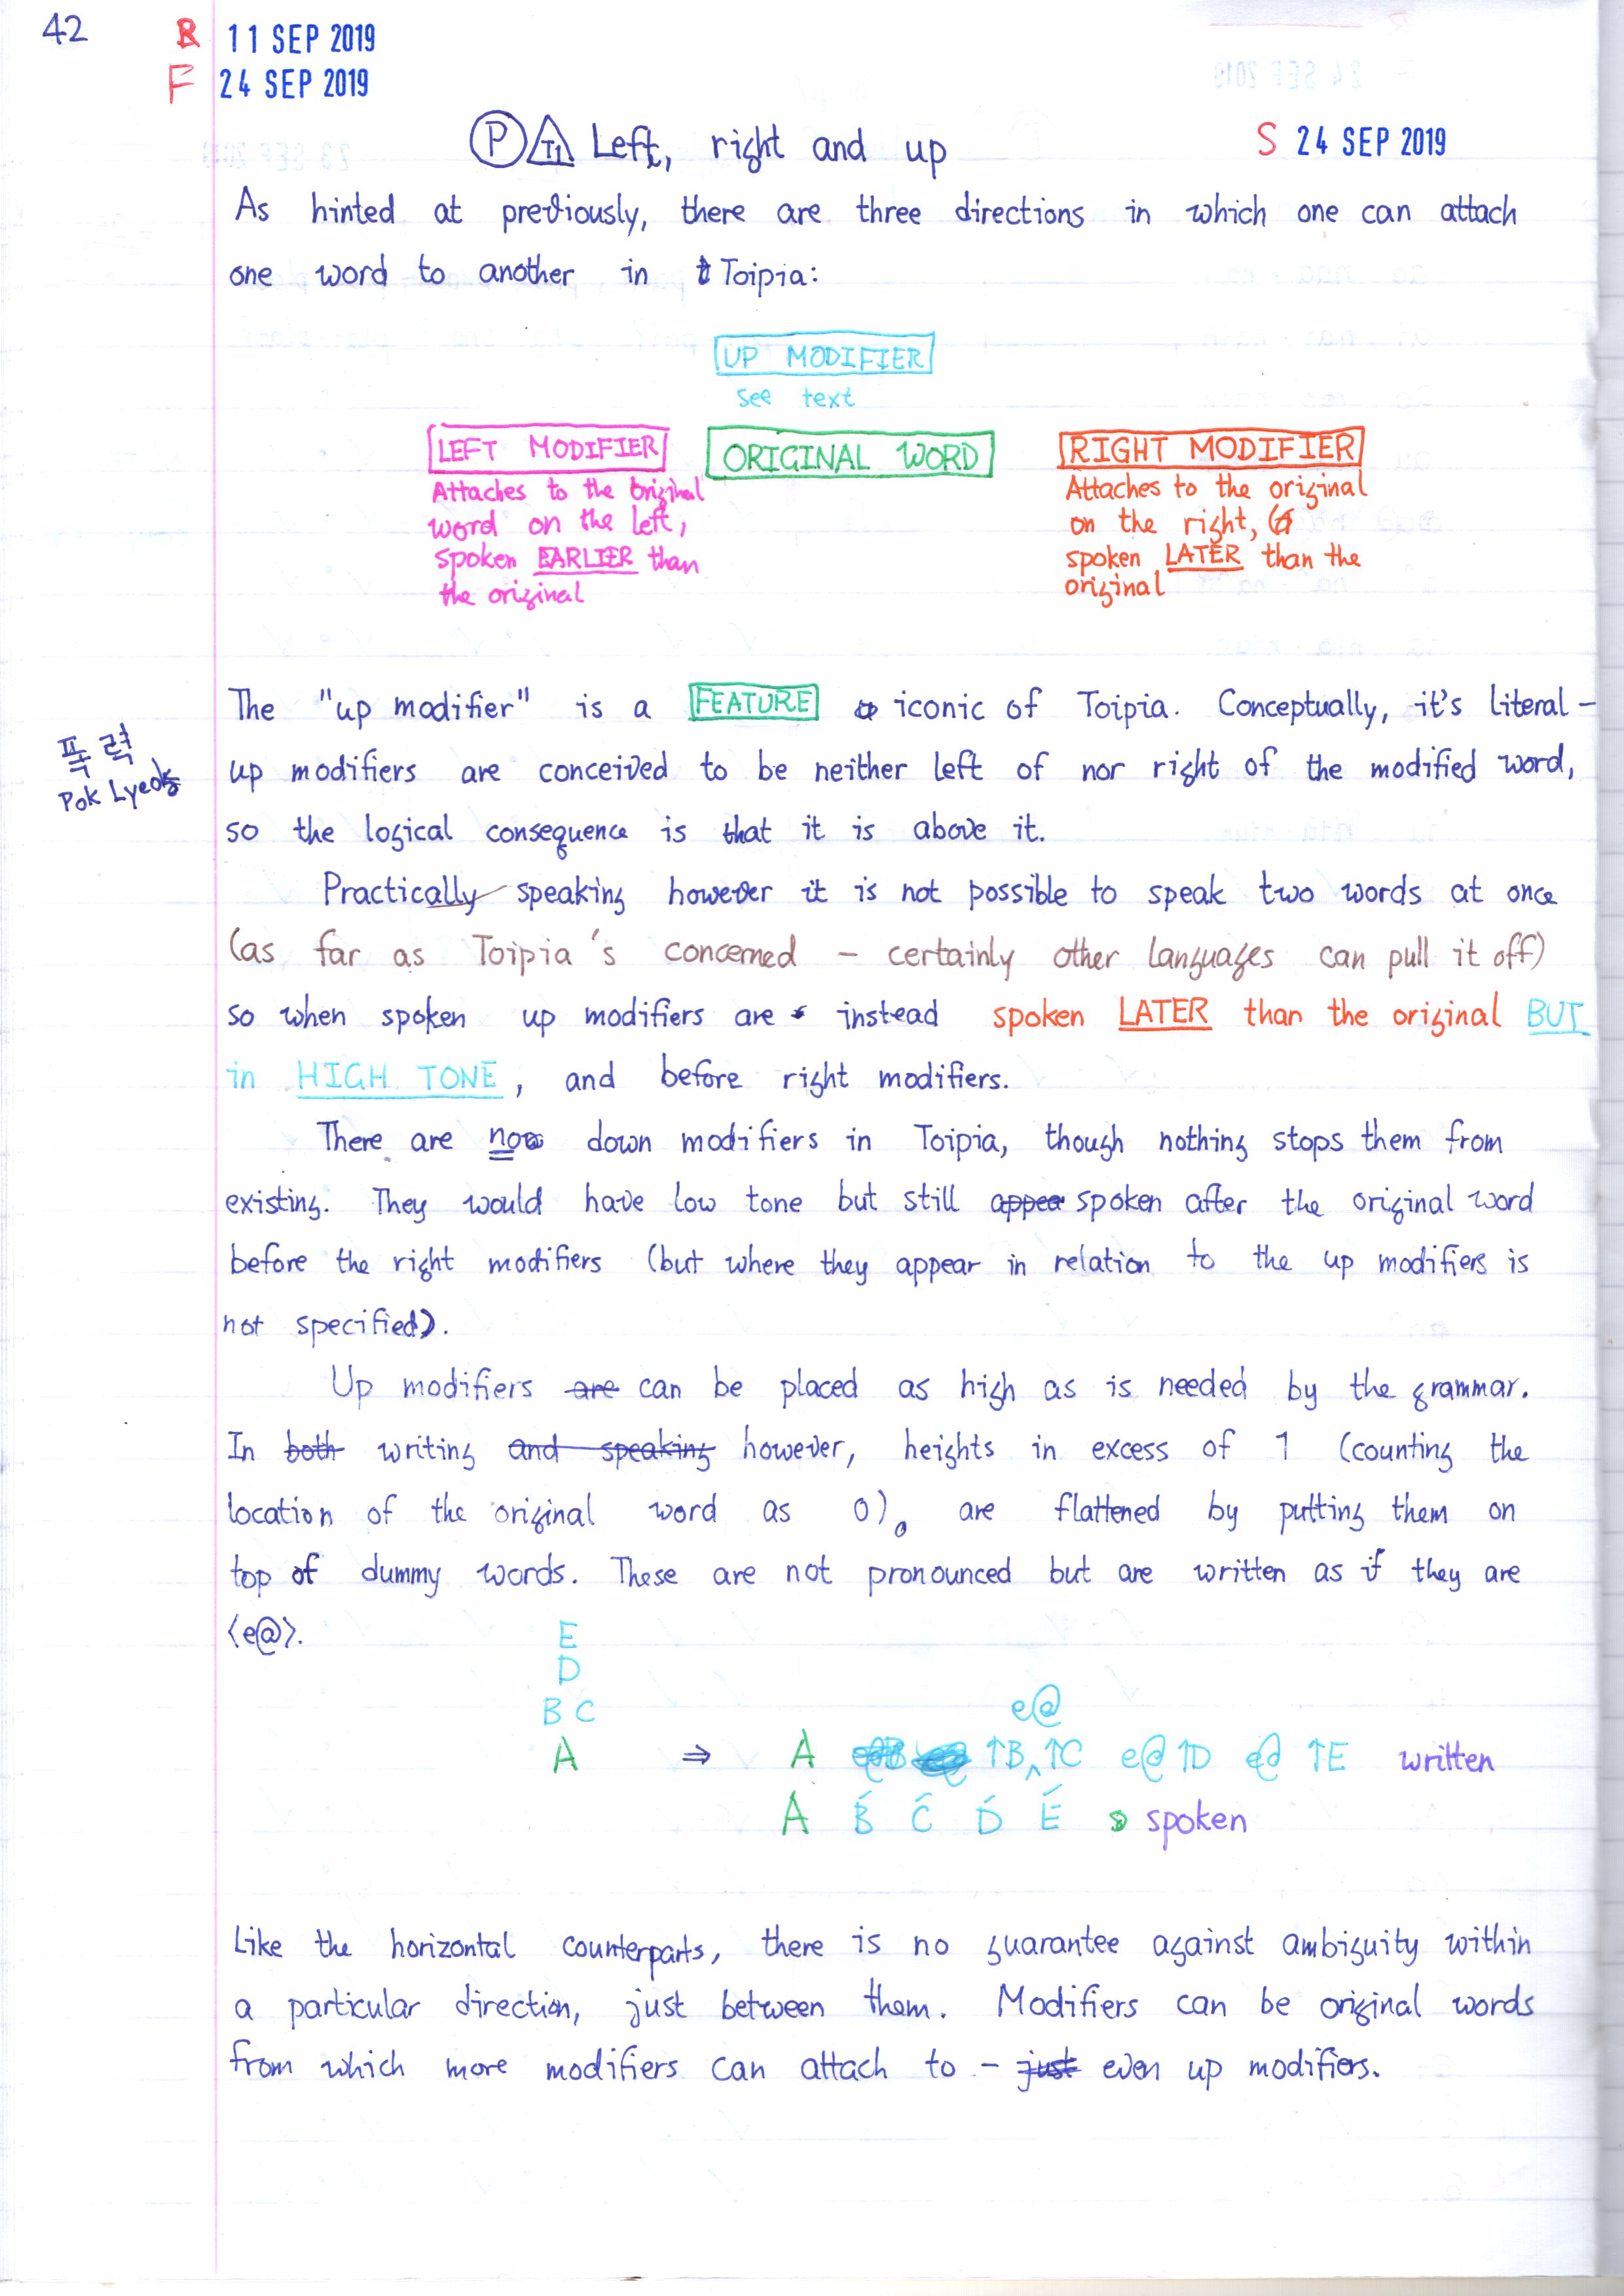 42
R 11 SEP 2019
F 24 SEP 2019
P T1 Left, right and up
S 24 SEP 2019
As hinted at previously, there are three directions in which one can attach
one word to another in Toipia:
UP MODIFIER
see text
LEFT MODIFIER
Attaches to the original
word on the left,
spoken EARLIER than
the original
ORIGINAL WORD
RIGHT MODIFIER
Attaches to the original
on the right,
spoken LATER than the
original
The "up modifier" is a FEATURE iconic of Toipia. Conceptually, it's literal –
up modifiers are conceived to be neither left of nor right of the modified word,
so the logical consequence is that it is above it.
폭력
Pok Lyeok
Practically speaking however it is not possible to speak two words at once
(as far as Toipia's concerned – certainly other languages can pull it off)
so when spoken up modifiers are instead spoken LATER than the original BUT
in HIGH TONE, and before right modifiers.
There are no down modifiers in Toipia, though nothing stops them from
existing. They would have low tone but still appear spoken after the original word
before the right modifiers (but where they appear in relation to the up modifiers is
not specified).
Up modifiers are can be placed as high as is needed by the grammar.
In both writing and speaking however, heights in excess of 1 (counting the
location of the original word as 0), are flattened by putting them on
top of dummy words. These are not pronounced but are written as if they are
⟨e@⟩.
E
D
B C
A
⇒
e@
A ↑B ↑C e@ ↑D e@ ↑E written
A B́ Ć D́ É spoken
Like the horizontal counterparts, there is no guarantee against ambiguity within
a particular direction, just between them. Modifiers can be original words
from which more modifiers can attach to – just even up modifiers.